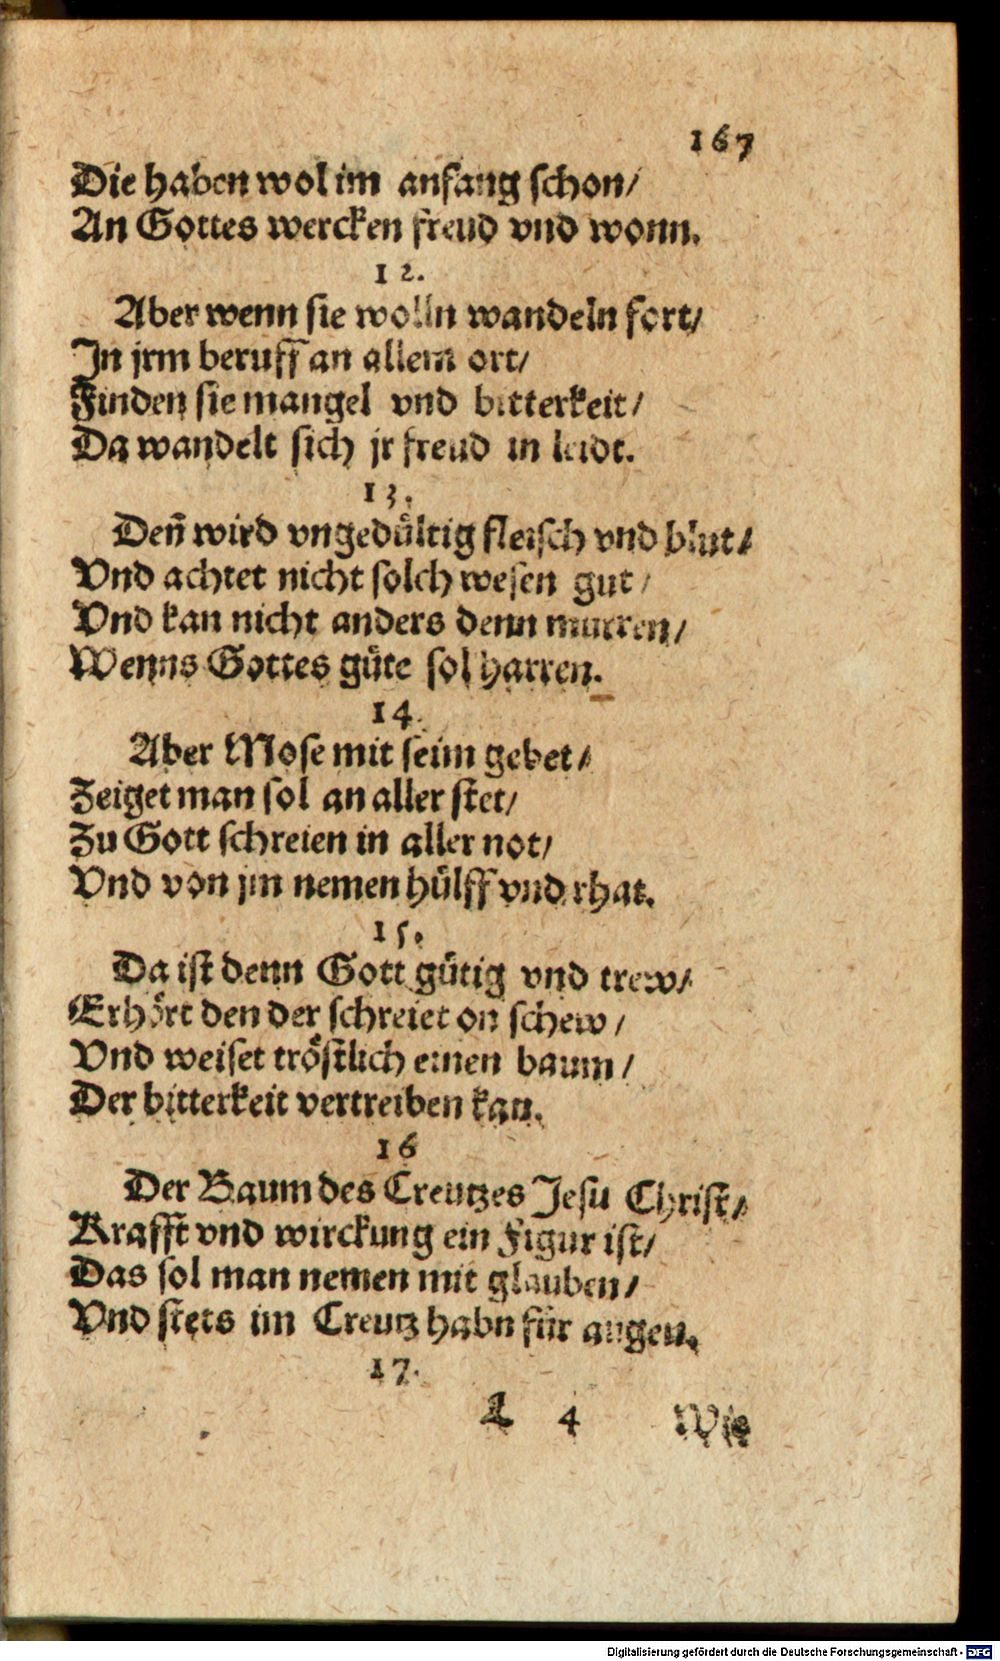 167
Die haben wol im anfang schon/
An Gottes wercken freud vnd wonn.
12.
Aber wenn sie wolln wandeln fort/
In jrm beruff an allem ort/
Finden sie mangel vnd bitterkeit/
Da wandelt sich jr freud in leidt.
13.
Deñ wird vngedůltig fleisch vnd blut/
Vnd achtet nicht solch wesen gut/
Vnd kan nicht anders denn murren/
Wenns Gottes gůte sol harren.
14.
Aber Mose mit seim gebet/
Zeiget man sol an aller stet/
Zu Gott schreien in aller not/
Vnd von jm nemen hůlff vnd rhat.
15.
Da ist denn Gott gůtig vnd trew/
Erhört den der schreiet on schew/
Vnd weiset tröstlich einen baum/
Der bitterkeit vertreiben kan.
16
Der Baum des Creutzes Jesu Christ/
Krafft vnd wirckung ein Figur ist/
Das sol man nemen mit glauben/
Vnd stets im Creutz habn für augen.
17.
4 Wie
Digitalisierung gefördert durch die Deutsche Forschungsgemeinschaft - DFG